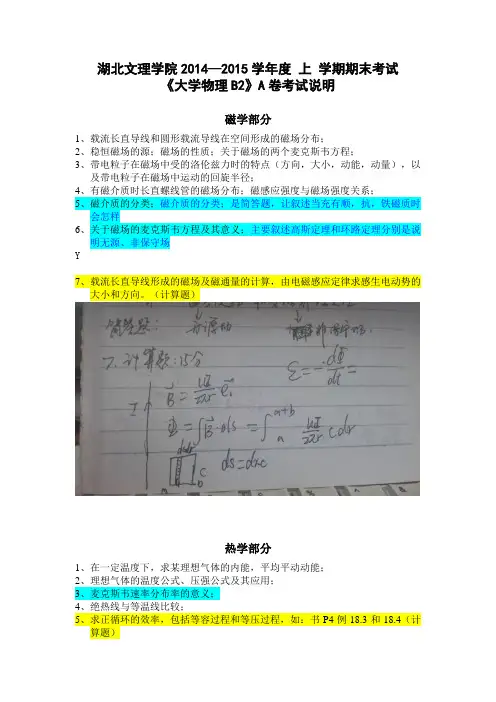 湖北文理学院2014—2015学年度 上 学期期末考试
《大学物理B2》A卷考试说明
磁学部分
1、载流长直导线和圆形载流导线在空间形成的磁场分布；
2、稳恒磁场的源；磁场的性质；关于磁场的两个麦克斯韦方程；
3、带电粒子在磁场中受的洛伦兹力时的特点（方向，大小，动能，动量），以
及带电粒子在磁场中运动的回旋半径；
4、有磁介质时长直螺线管的磁场分布；磁感应强度与磁场强度关系；
5、磁介质的分类；磁介质的分类；是简答题，让叙述当充有顺，抗，铁磁质时
会怎样
6、关于磁场的麦克斯韦方程及其意义；主要叙述高斯定理和环路定理分别是说
明无源、非保守场
Y
7、载流长直导线形成的磁场及磁通量的计算，由电磁感应定律求感生电动势的
大小和方向。（计算题）
简答题：
7. 计算题：15分
ε=-dΦ/dt=
I
B=uI/2πr e
Φ=∫B·ds=∫ₐᵃ⁺ᵇ uI/2πr cdr
c
b
ds=drc
热学部分
1、在一定温度下，求某理想气体的内能，平均平动动能；
2、理想气体的温度公式、压强公式及其应用；
3、麦克斯韦速率分布率的意义；
4、绝热线与等温线比较；
5、求正循环的效率，包括等容过程和等压过程，如：书P4例18.3和18.4（计
算题）